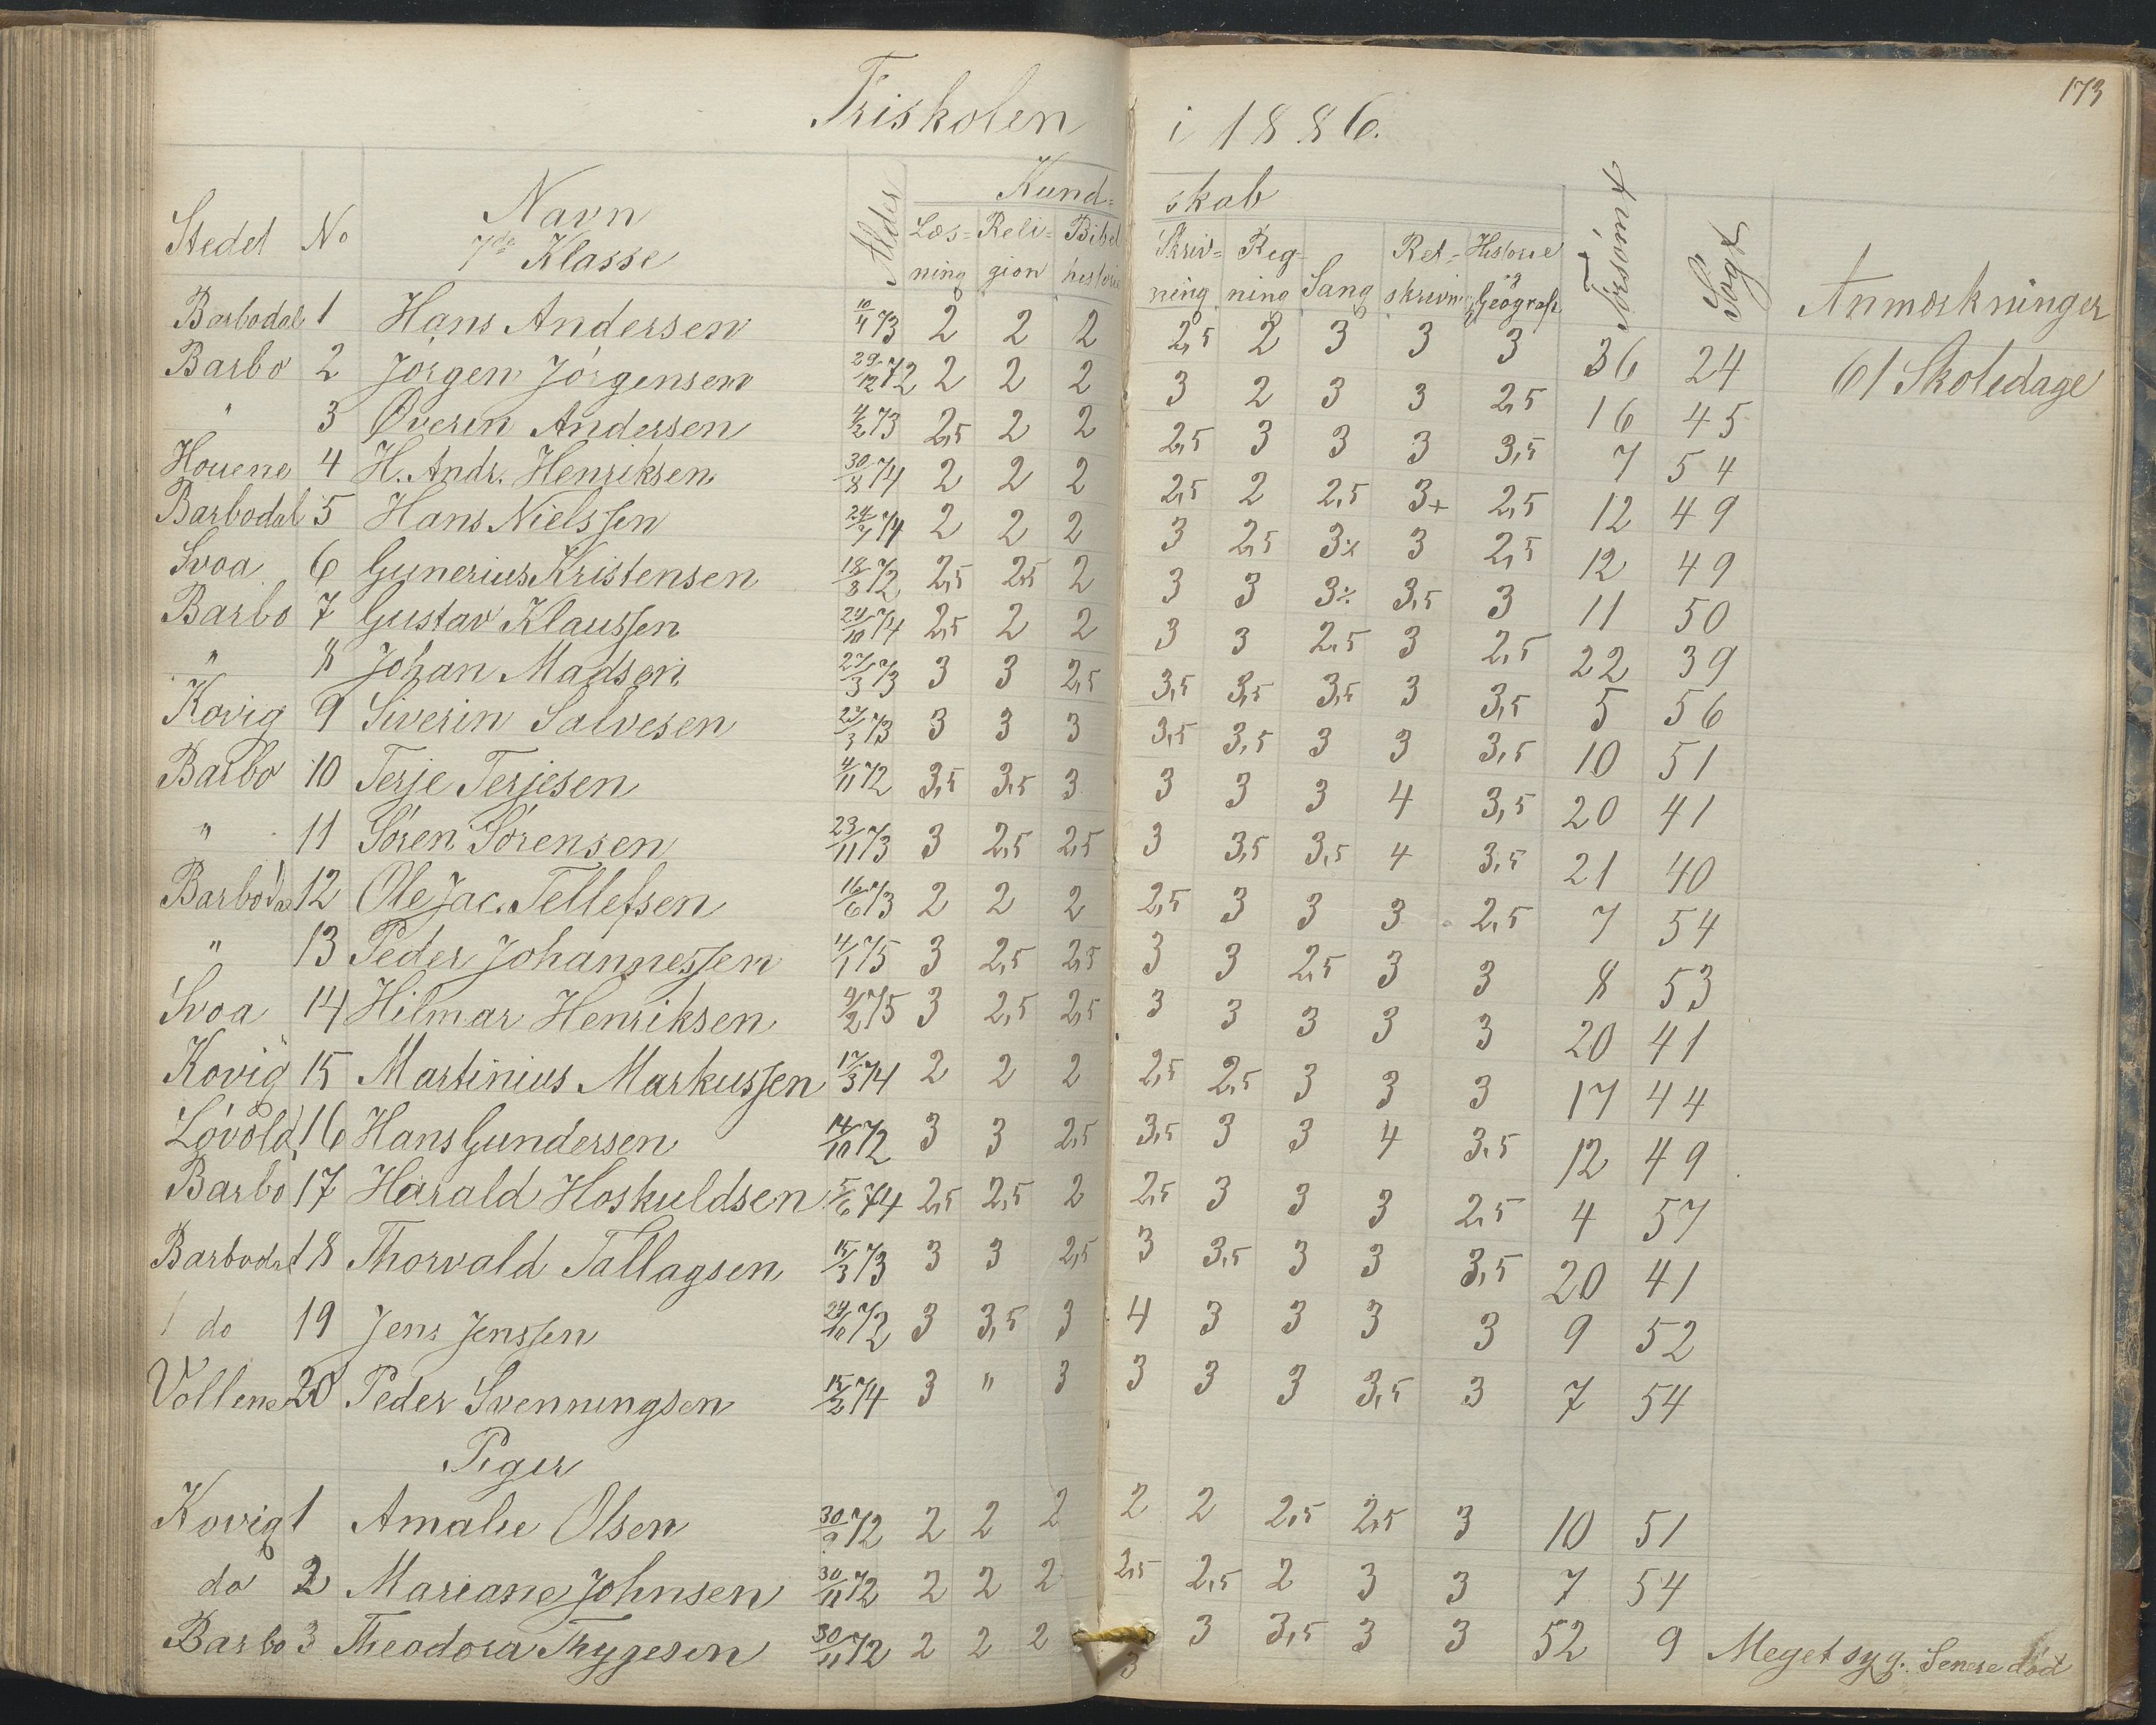 173
Friskolen i 1886.
Stedet No Navn Alder Kund= skab Forsömt Sögt Anmærkninger
7de Klasse Læs=ning Reli=gion Bibelhistorie Skriv=ning Reg=ning Sang Ret=skrivn Historie og Geögrafi
Barbodal 1 Hans Andersen 10/4 73 2 2 2 2,5 2 3 3 3 36 24 61 Skoledage
Barbo 2 Jörgen Jörgensen 29/12 72 2 2 2 3 2 3 3 2,5 16 45
" 3 Øverin Andersen 4/2 73 2,5 2 2 2,5 3 3 3 3,5 7 54
Houene 4 H. Andr. Henriksen 30/8 74 2 2 2 2,5 2 2,5 3+ 2,5 12 49
Barbodal 5 Hans Nielssen 24/7 74 2 2 2 3 2,5 3% 3 2,5 12 49
Svoa 6 Gunerius Kristensen 18/8 72 2,5 2,5 2 3 3 3% 3,5 3 11 50
Barbo 7 Gustav Klaussen 24/10 74 2,5 2 2 3 3 2,5 3 2,5 22 39
" 8 Johan Madsen 27/3 73 3 3 2,5 3,5 3,5 3,5 3 3,5 5 56
Kovig 9 Siverin Salvesen 27/3 73 3 3 3 3,5 3,5 3 3 3,5 10 51
Barbo 10 Terje Terjesen 4/11 72 3,5 3,5 3 3 3 3 4 3,5 20 41
" 11 Sören Sörensen 23/11 73 3 2,5 2,5 3 3,5 3,5 4 3,5 21 40
Barbodal 12 Ole Jac. Tellefsen 16/6 73 2 2 2 2,5 3 3 3 2,5 7 54
" 13 Peder Johannessen 4/1 75 3 2,5 2,5 3 3 2,5 3 3 8 53
Svoa 14 Hilmar Henriksen 9/2 75 3 2,5 2,5 3 3 3 3 3 20 41
Kovig 15 Martinius Markussen 17/3 74 2 2 2 2,5 2,5 3 3 3 17 44
Lövold 16 Hans Gundersen 14/10 72 3 3 2,5 3,5 3 3 4 3,5 12 49
Barbo 17 Harald Hoskuldsen 5/6 74 2,5 2,5 2 2,5 3 3 3 2,5 4 57
Barbodal 18 Thorvald Tallagsen 15/3 73 3 3 2,5 3 3,5 3 3 3,5 20 41
do 19 Jens Jenssen 24/10 72 3 3,5 3 4 3 3 3 3 9 52
Vollene 20 Peder Svenningsen 15/2 74 3 " 3 3 3 3 3,5 3 7 54
Piger
Kovig 1 Amalie Olsen 30/9 72 2 2 2 2 2 2,5 2,5 3 10 51
do 2 Mariane Johnsen 30/11 72 2 2 2 2,5 2,5 2 3 3 7 54
Barbo 3 Theodora Thygesen 30/11 72 2 2 2 3 3 3,5 3 3 52 9 Meget syg. Senere död